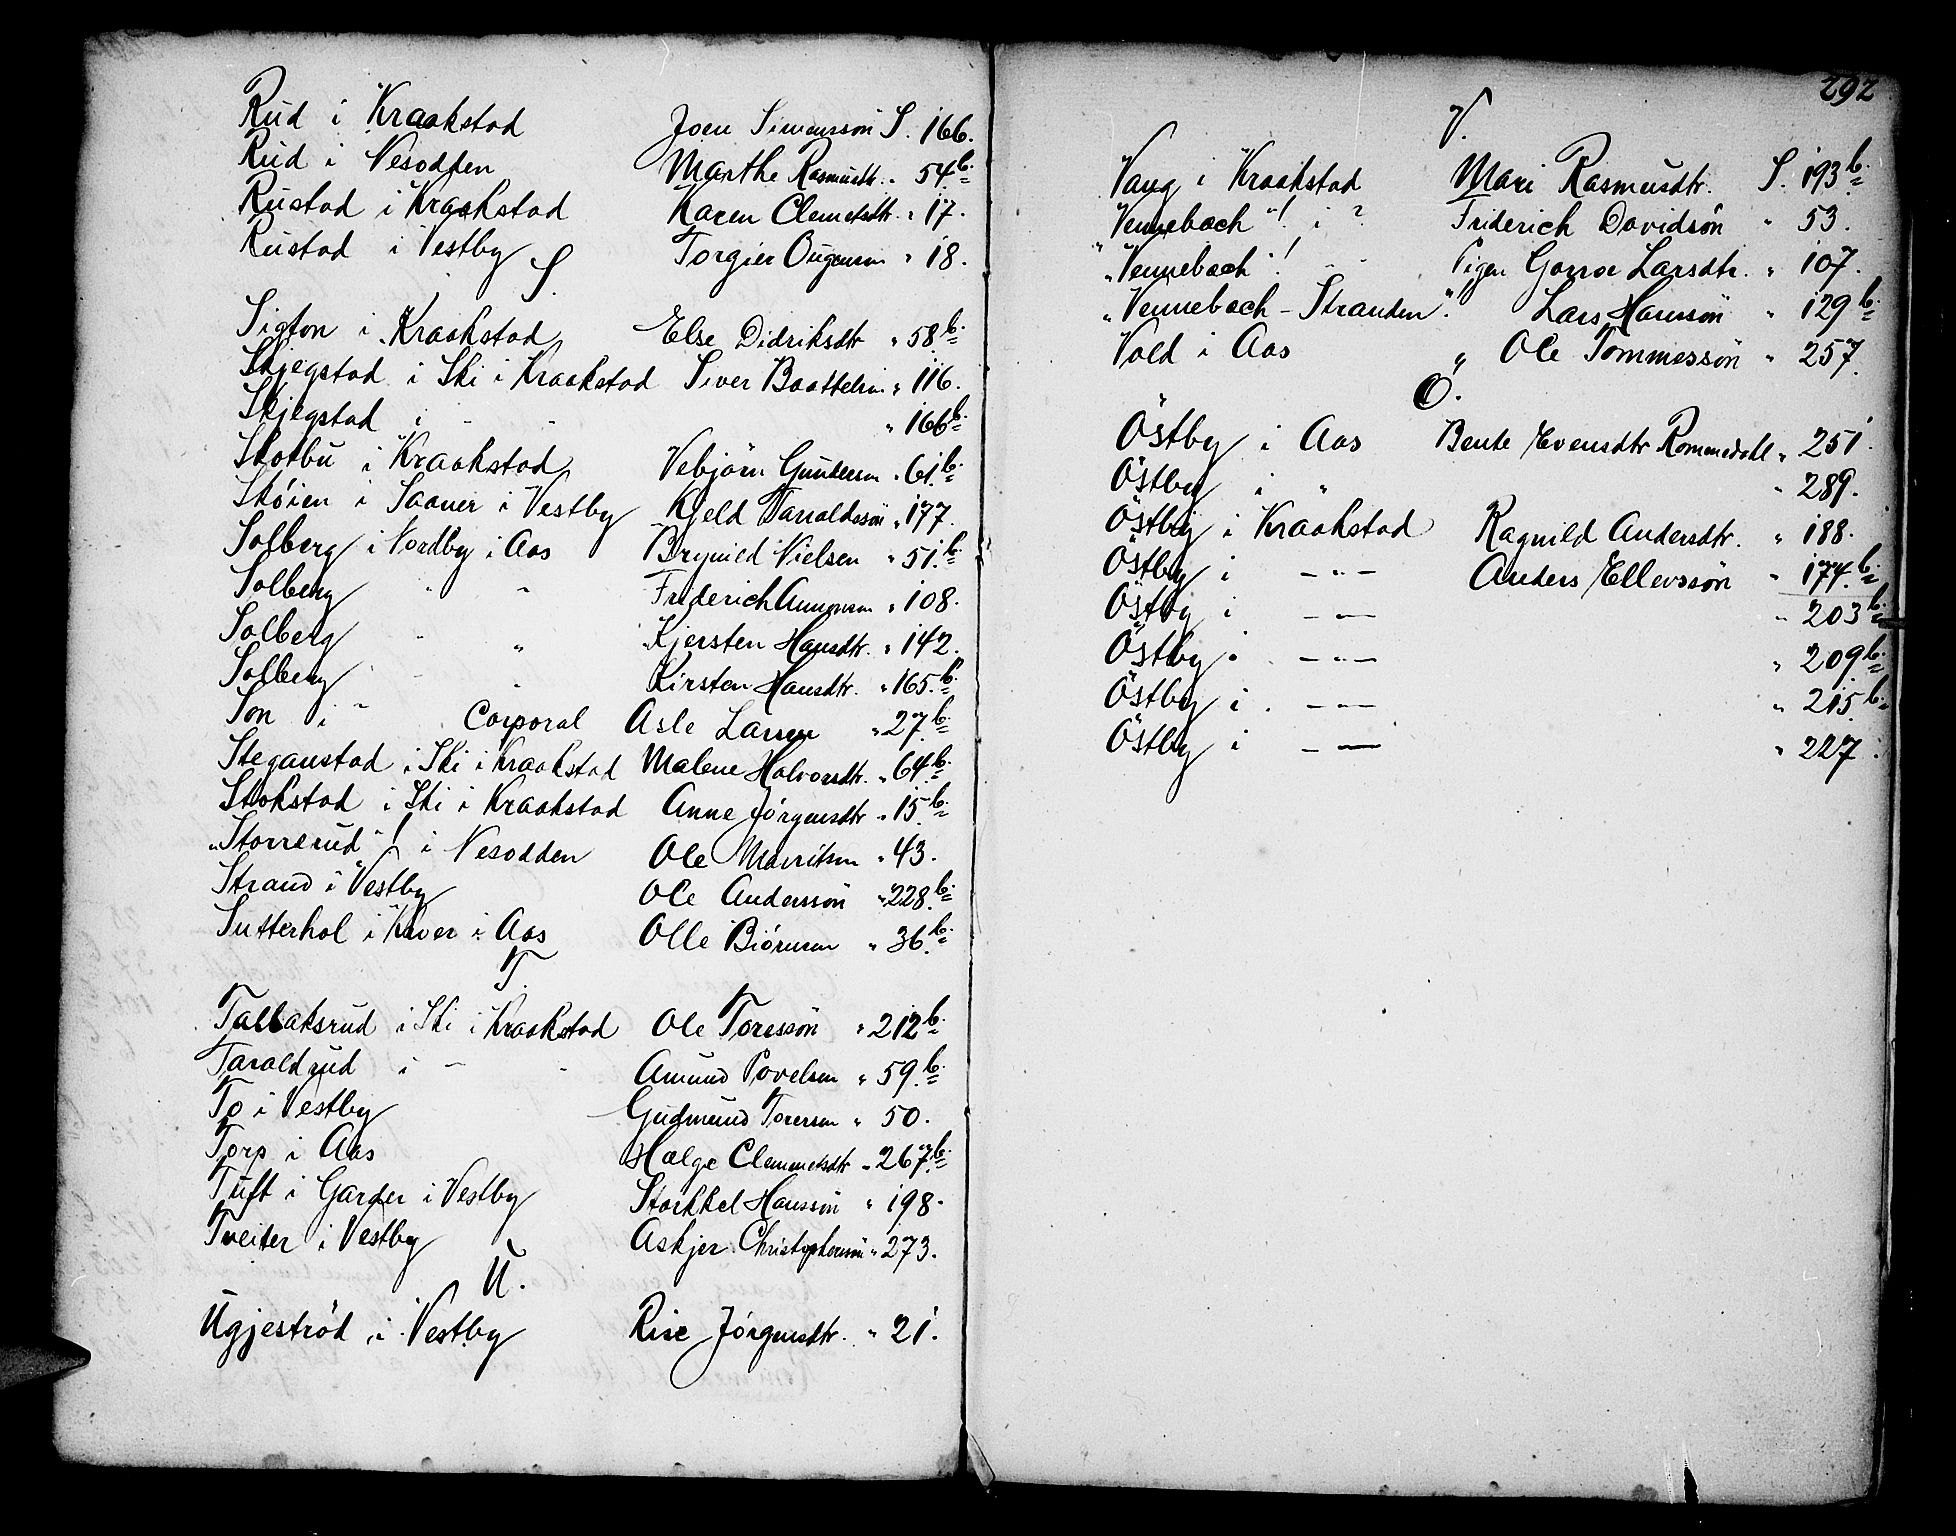 Rud i Kraakstad Joen Simensson S. 166.
Rud i Nesodden Marthe Rasmusdtr. " 54 b.
Rustad i Kraakstad Karen Clemetsdtr. " 17.
Rustad i Vestby Torgier " 18.
S.
Sigton i Kraakstad Else Didriksdtr " 58 b.
Skjegstad i Ski i Kraakstad Siver " 116.
Skjegstad i - - " 166 b.
Skotbu i Kraakstad Vebjörn Gundersen " 61 b.
Skóien i Saaner i Vestby Kjeld Taraldssön " 177.
Solberg i Nordby i Aas Brynild Nielsen " 51 b.
Solberg " " Friderich Amundsen " 108.
Solberg " " Kjersten Hansdtr. " 142.
Solberg " " Kirsten Hansdtr. " 165 b.
Son i " Corporal Asle Larsen " 27 b.
Steganstad i Ski i Kraakstad Malene Halvorsdtr. " 64 b.
Stokstad i Ski i Kraakstad Anne Jórgensdtr " 15 b.
"Storrerud"! i Nesodden Ole Mavritsen " 43.
Strand i Vestby Ole Anderssön " 228 b.
Sutterhol i Kroer i Aas Olle Biórnsen " 36 b.
T.
Tallaksrud i Ski i Kraakstad Ole Toressön " 212 b.
Taraldrud i - - Amund Povelsen " 59 b.
To i Vestby Gudmund Torersen " 50.
Torp i Aas Hælge Clemmetsdtr " 267 b.
Tuft i Garder i Vestby Storkkel Hanssön " 198.
Tveiter i Vestby Askjer Christophersön " 273.
U.
Ugjeströd i Vestby Rise Jórgensdtr. " 21.
292
V.
Vaug i Kraakstad Mari Rasmusdtr. S. 193 b.
"Vennebech"! i ? Friderich Davidsön " 53.
"Vennebech"! - - Pigen Larsdtr. " 107.
"Vennebech-Stranden"! Lars Hanssön " 129 b.
Vold i Aas " Ole Tommessön " 257.
Ö.
Östby i Aas Bente Evensdtr Rommedahl " 251.
Östby i " " 289.
Östby i Kraakstad Ragnild Andersdtr. " 188.
Östby i -"- Anders Ellevssön " 174 b.
Östby i -"- " 203 b.
Östby i -"- " 209 b.
Östby i -"- " 215 b.
Östby i -"- " 227.